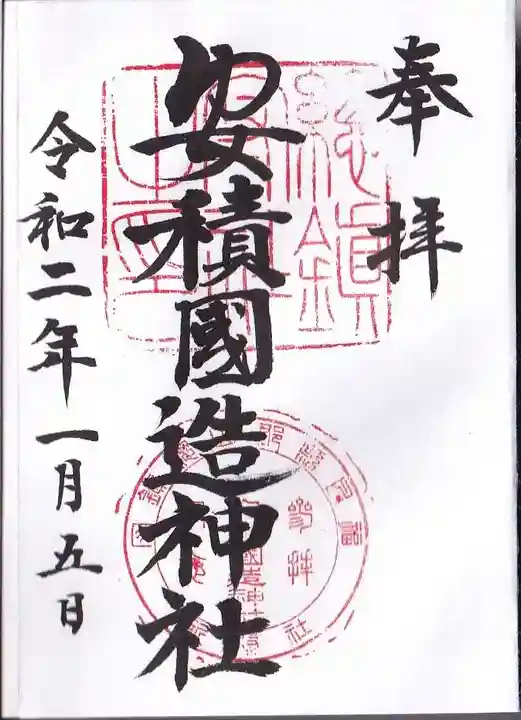 奉拝
安積國造神社
令和二年一月五日
總鎮
參拜